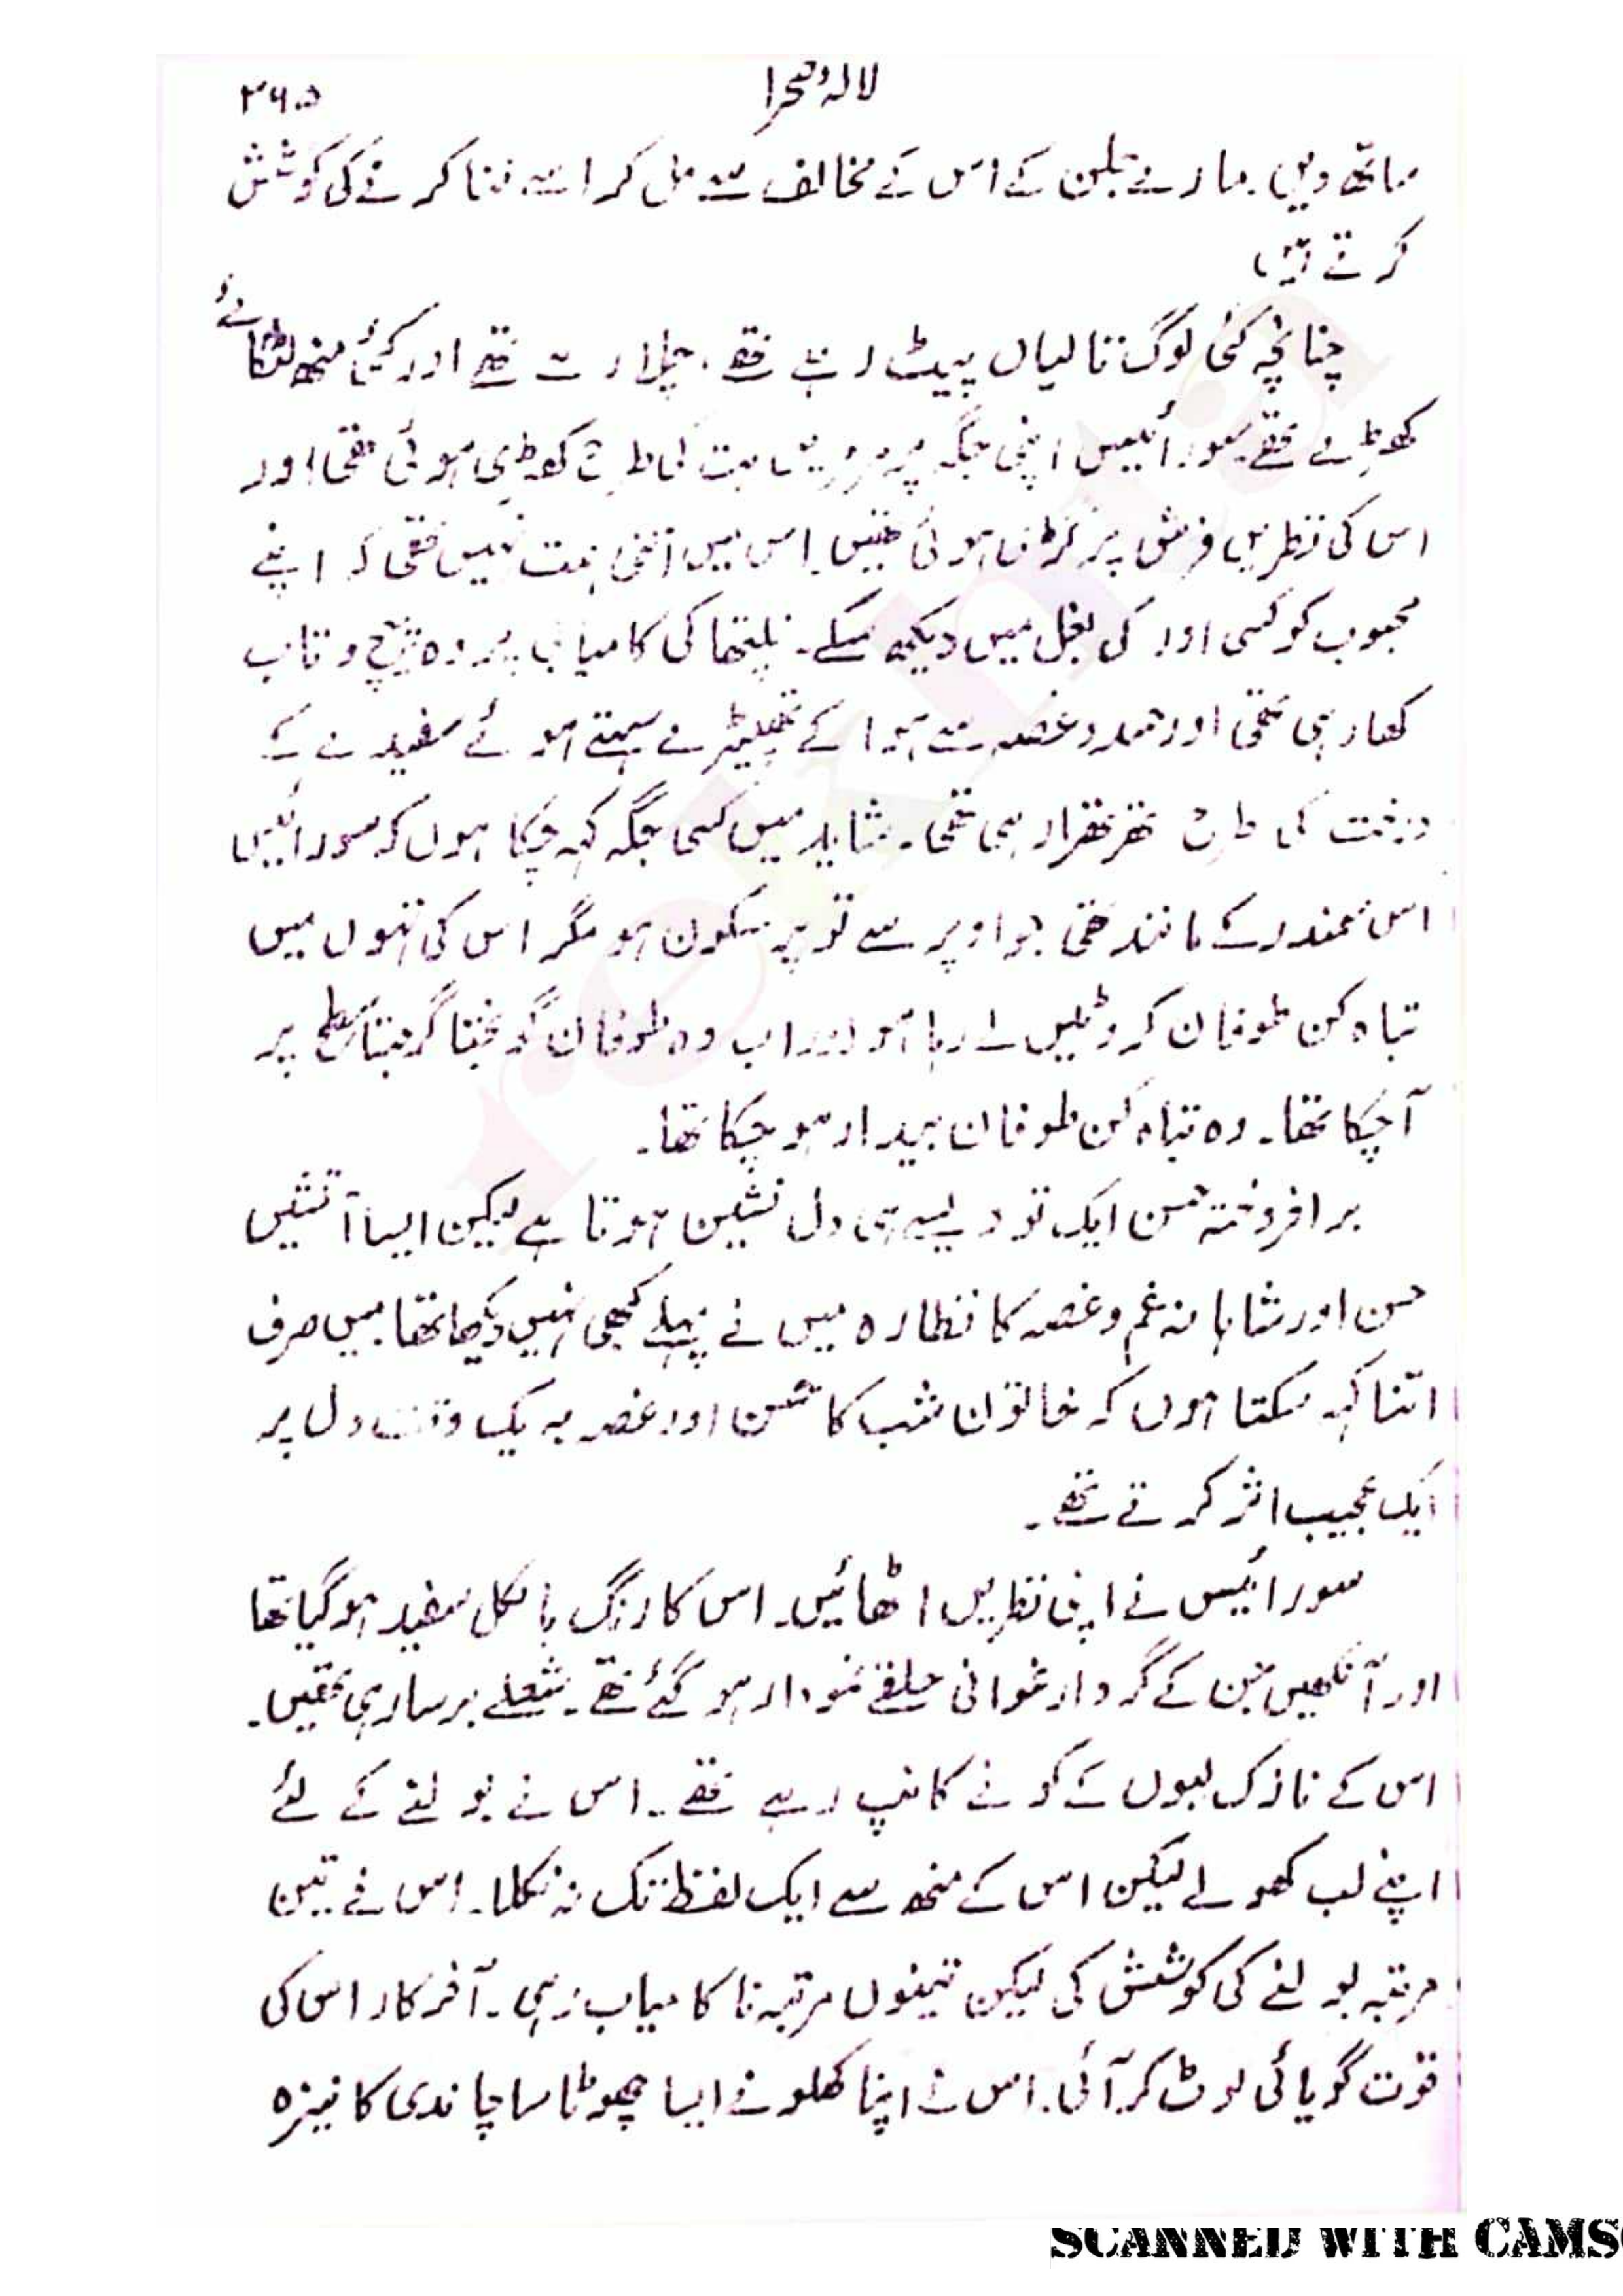 لالۂ صحرا
۲۶۵
ساتھ دیں۔ مارے جلن کے اس کے مخالف سے مل کر اسے فنا کرنے کی کوشش
کرتے ہیں
چنانچہ کئی لوگ تالیاں پیٹ رہے تھے، چلا رہے تھے اور کئی منھ لٹکائے
کھڑے تھے سورائیس اپنی جگہ پر بت کی طرح کھڑی ہوئی تھی اور
اس کی نظریں فرش پر گڑی ہوئی تھیں۔ اس میں اتنی ہمت نہیں تھی کہ اپنے
محبوب کو کسی اور کی بغل میں دیکھ سکے۔ نلیتھا کی کامیابی پر وہ پیچ و تاب
کھا رہی تھی اور حسد و غصہ سے ہوا کے تھپیڑے سہتے ہوئے سفیدے کے
درخت کی طرح تھرتھرا رہی تھی۔ شاید میں کسی جگہ کہہ چکا ہوں کہ سورائیس
اس سمندر کے مانند تھی جو اوپر سے تو پر سکون ہو مگر اس کی تہوں میں
تباہ کن طوفان کروٹیں لے رہا ہو اور اب وہ طوفان گونجتا گرجتا سطح پر
آ چکا تھا۔ وہ تباہ کن طوفان بیدار ہو چکا تھا۔
برافروختہ حسن ایک تو ویسے ہی دل نشین ہوتا ہے لیکن ایسا آتشیں
حسن اور شاہانہ غم و غصہ کا نظارہ میں نے پہلے کبھی نہیں دیکھا تھا میں صرف
اتنا کہہ سکتا ہوں کہ خاتون شب کا حسن اور غصہ بہ یک وقت دل پر
ایک عجیب اثر کرتے تھے۔
سورائیس نے اپنی نظریں اٹھائیں۔ اس کا رنگ بالکل سفید ہو گیا تھا
اور آنکھیں جن کے گرد ارغوانی حلقے نمودار ہو گئے تھے۔ شعلے برسا رہی تھیں۔
اس کے نازک لبوں کے کونے کانپ رہے تھے۔ اس نے بولنے کے لئے
اپنے لب کھولے لیکن اس کے منھ سے ایک لفظ تک نہ نکلا۔ اس نے تین
مرتبہ بولنے کی کوشش کی لیکن تینوں مرتبہ ناکامیاب رہی۔ آخر کار اس کی
قوت گویائی لوٹ کر آئی۔ اس نے اپنا کھلونے ایسا چھوٹا سا چاندی کا نیزہ
SCANNED WITH CAMS